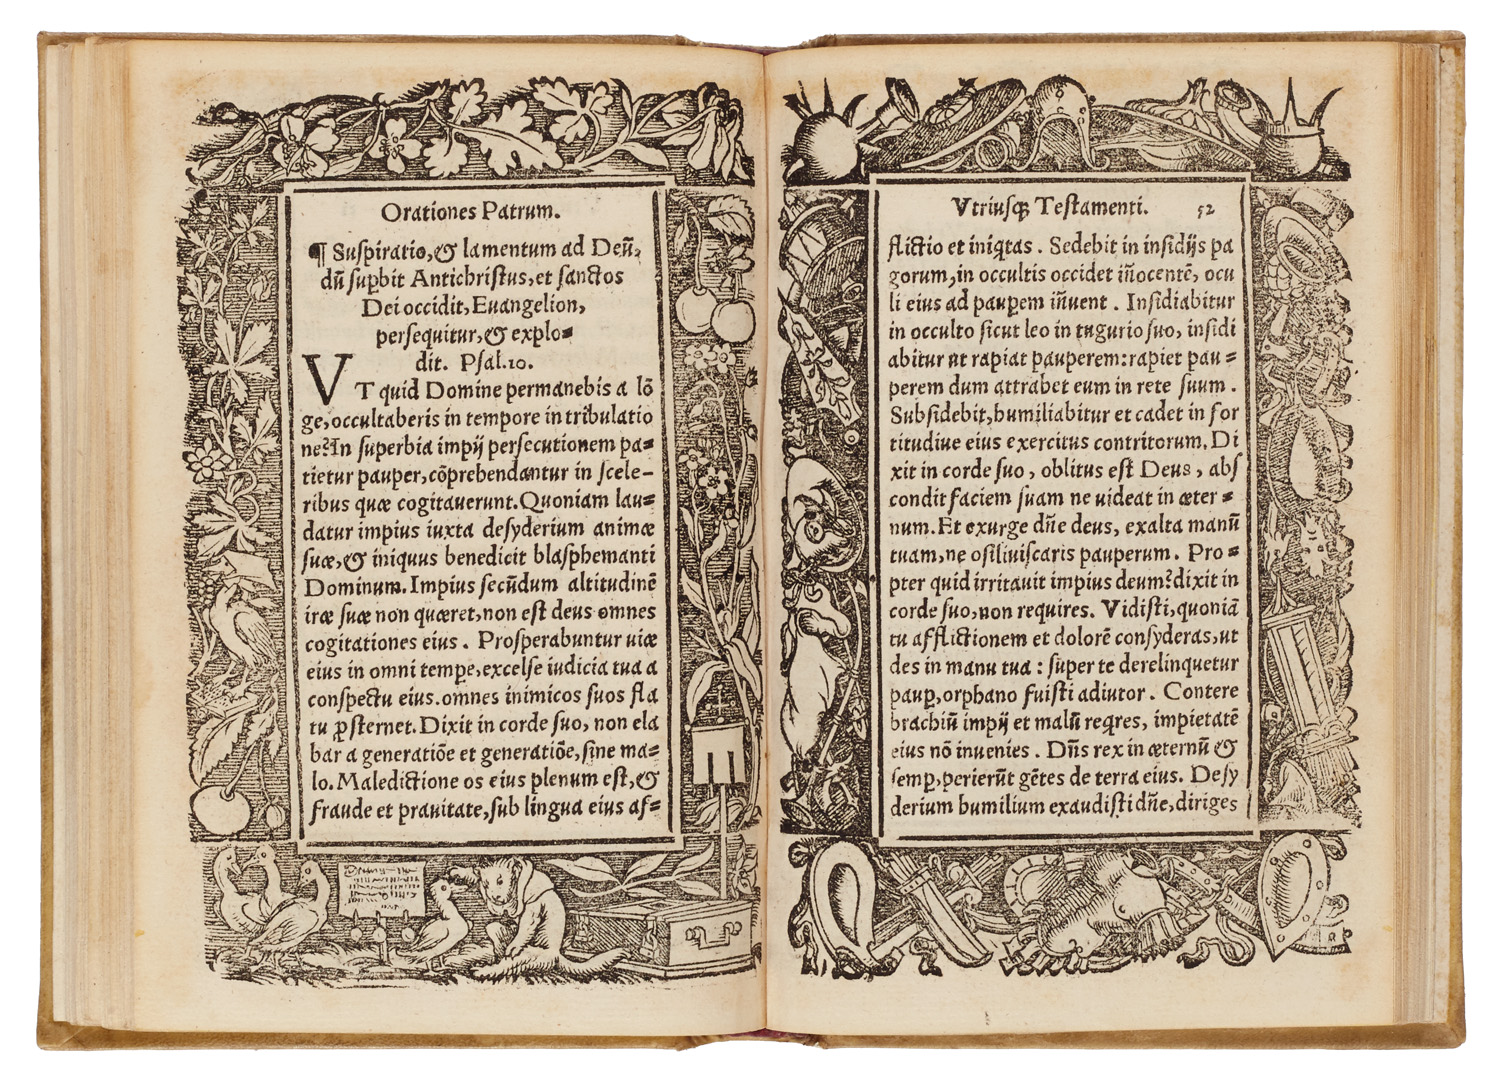 Orationes Patrum.
¶ Suspiratio, & lamentum ad Deū,
dū supbit Antichristus, et sanctos
Dei occidit, Euangelion,
persequitur, & explo=
dit. Psal.10.
VT quid Domine permanebis a lō
ge, occultaberis in tempore in tribulatio
ne? In superbia impij persecutionem pa=
tietur pauper, cōprehendantur in scele-
ribus quæ cogitauerunt. Quoniam lau=
datur impius iuxta desyderium animæ
suæ, & iniquus benedicit blasphemanti
Dominum. Impius secūdum altitudinē
iræ suæ non quæret, non est deus omnes
cogitationes eius. Prosperabuntur uiæ
eius in omni tempe, excelse iudicia tua a
conspectu eius. omnes inimicos suos fla
tu ꝓsternet. Dixit in corde suo, non ela
bar a generatiōe et generatiōe, sine ma=
lo. Maledictione os eius plenum est, &
fraude et prauitate, sub lingua eius af=
Vtriusqꝫ Testamenti. 52
flictio et iniqtas. Sedebit in insidijs pa
gorum, in occultis occidet iñocentē, ocu
li eius ad paupem iñuent. Insidiabitur
in occulto sicut leo in tugurio suo, insidi
abitur ut rapiat pauperem: rapiet pau=
perem dum attrahet eum in rete suum.
Subsidebit, humiliabitur et cadet in for
titudiue eius exercitus contritorum. Di
xit in corde suo, oblitus est Deus, abs
condit faciem suam ne uideat in æter=
num. Et exurge dñe deus, exalta manū
tuam, ne osiliuiscaris pauperum. Pro=
pter quid irritauit impius deum? dixit in
corde suo, non requires. Vidisti, quoniā
tu afflictionem et dolorē consyderas, ut
des in manu tua: super te derelinquetur
paup, orphano fuisti adiutor. Contere
brachiū impij et malū reqres, impietatē
eius nō inuenies. Dñs rex in æternū &
semp, perierūt gētes de terra eius. Desy
derium humilium exaudisti dñe, diriges